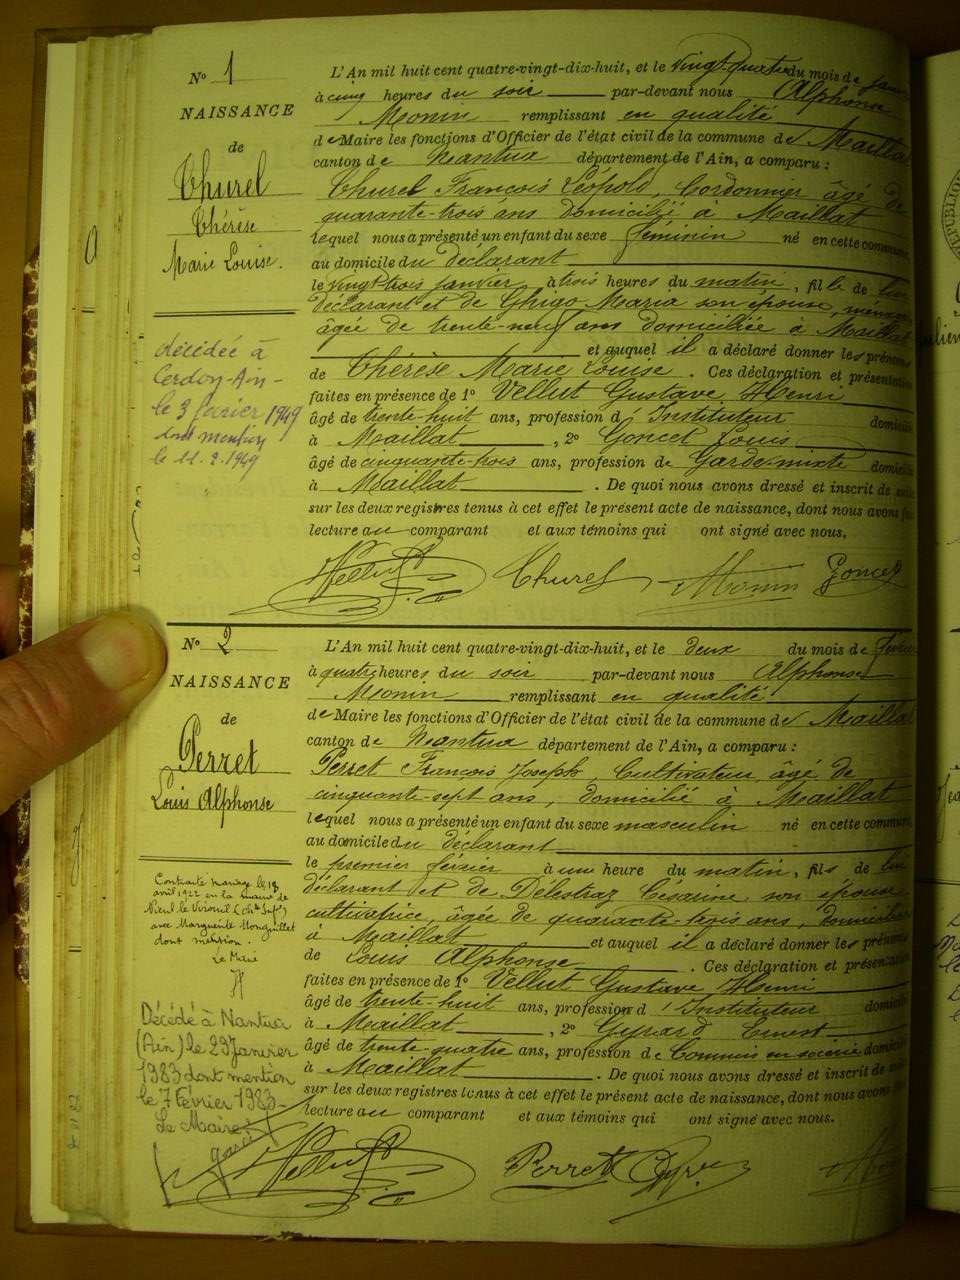 N° 1
NAISSANCE
de
Thurel
Thérèse
Marie Louise.
décédée à
Cerdon-Ain-
le 3 février 1949
dont mention
le 11.2.1949
L'An mil huit cent quatre-vingt-dix-huit, et le vingt-quatre du mois de
à cinq heures du soir par-devant nous Alphonse
Monin remplissant en qualité
de Maire les fonctions d'Officier de l'état civil de la commune de Maillat
canton de Nantua département de l'Ain, a comparu :
Thurel François Léopold, Cordonnier âgé de
quarante-trois ans domicilié à Maillat
lequel nous a présenté un enfant du sexe féminin né en cette commune
au domicile du déclarant
le vingt-trois janvier à trois heures du matin, fille de lui
déclarant et de Ghigo Maria son épouse,
âgée de trente-neuf ans domiciliée à Maillat
et auquel il a déclaré donner les prénoms
de Thérèse Marie Louise. Ces déclaration et présentation
faites en présence de 1° Vellut Gustave Henri
âgé de trente-huit ans, profession d'Instituteur domicilié
à Maillat, 2° Goncet Louis
âgé de cinquante-trois ans, profession de Garde-mixte domicilié
à Maillat. De quoi nous avons dressé et inscrit de
sur les deux registres tenus à cet effet le présent acte de naissance, dont nous avons
lecture au comparant et aux témoins qui ont signé avec nous.
Vellut Thurel Monin Goncet
N° 2
NAISSANCE
de
Perret
Louis Alphonse
Contracté mariage le 18
avril 1922 en la mairie de
Nieul le Virouil (Chte Infre)
avec Marguerite
dont mention.
Le Maire
Décédé à Nantua
(Ain) le 29 Janvier
1983 dont mention
le 7 Février 1983-
Le Maire
L'An mil huit cent quatre-vingt-dix-huit, et le deux du mois de février
à quatre heures du soir par-devant nous Alphonse
Monin remplissant en qualité
de Maire les fonctions d'Officier de l'état civil de la commune de Maillat
canton de Nantua département de l'Ain, a comparu :
Perret François Joseph, Cultivateur, âgé de
cinquante-sept ans, domicilié à Maillat
lequel nous a présenté un enfant du sexe masculin né en cette commune
au domicile du déclarant
le premier février à une heure du matin, fils de lui
déclarant et de Délestraz Césarine son épouse
cultivatrice, âgée de quarante-trois ans, domiciliée
à Maillat et auquel il a déclaré donner les prénoms
de Louis Alphonse. Ces déclaration et présentation
faites en présence de 1° Vellut Gustave Henri
âgé de trente-huit ans, profession d'Instituteur domicilié
à Maillat, 2° Gyrard Ernest
âgé de trente-quatre ans, profession de Commis en soierie domicilié
à Maillat. De quoi nous avons dressé et inscrit de
sur les deux registres tenus à cet effet le présent acte de naissance, dont nous avons
lecture au comparant et aux témoins qui ont signé avec nous.
Vellut Perret